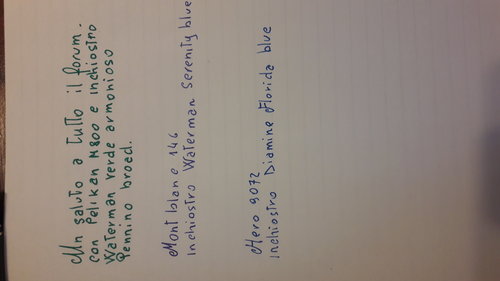 Un saluto a tutto il forum.
con Pelikan M800 e inchiostro
Waterman verde armonioso
Pennino broad.
Mont blanc 146
Inchiostro Waterman Serenity blue
Hero 9072
Inchiostro Diamine Florida blue